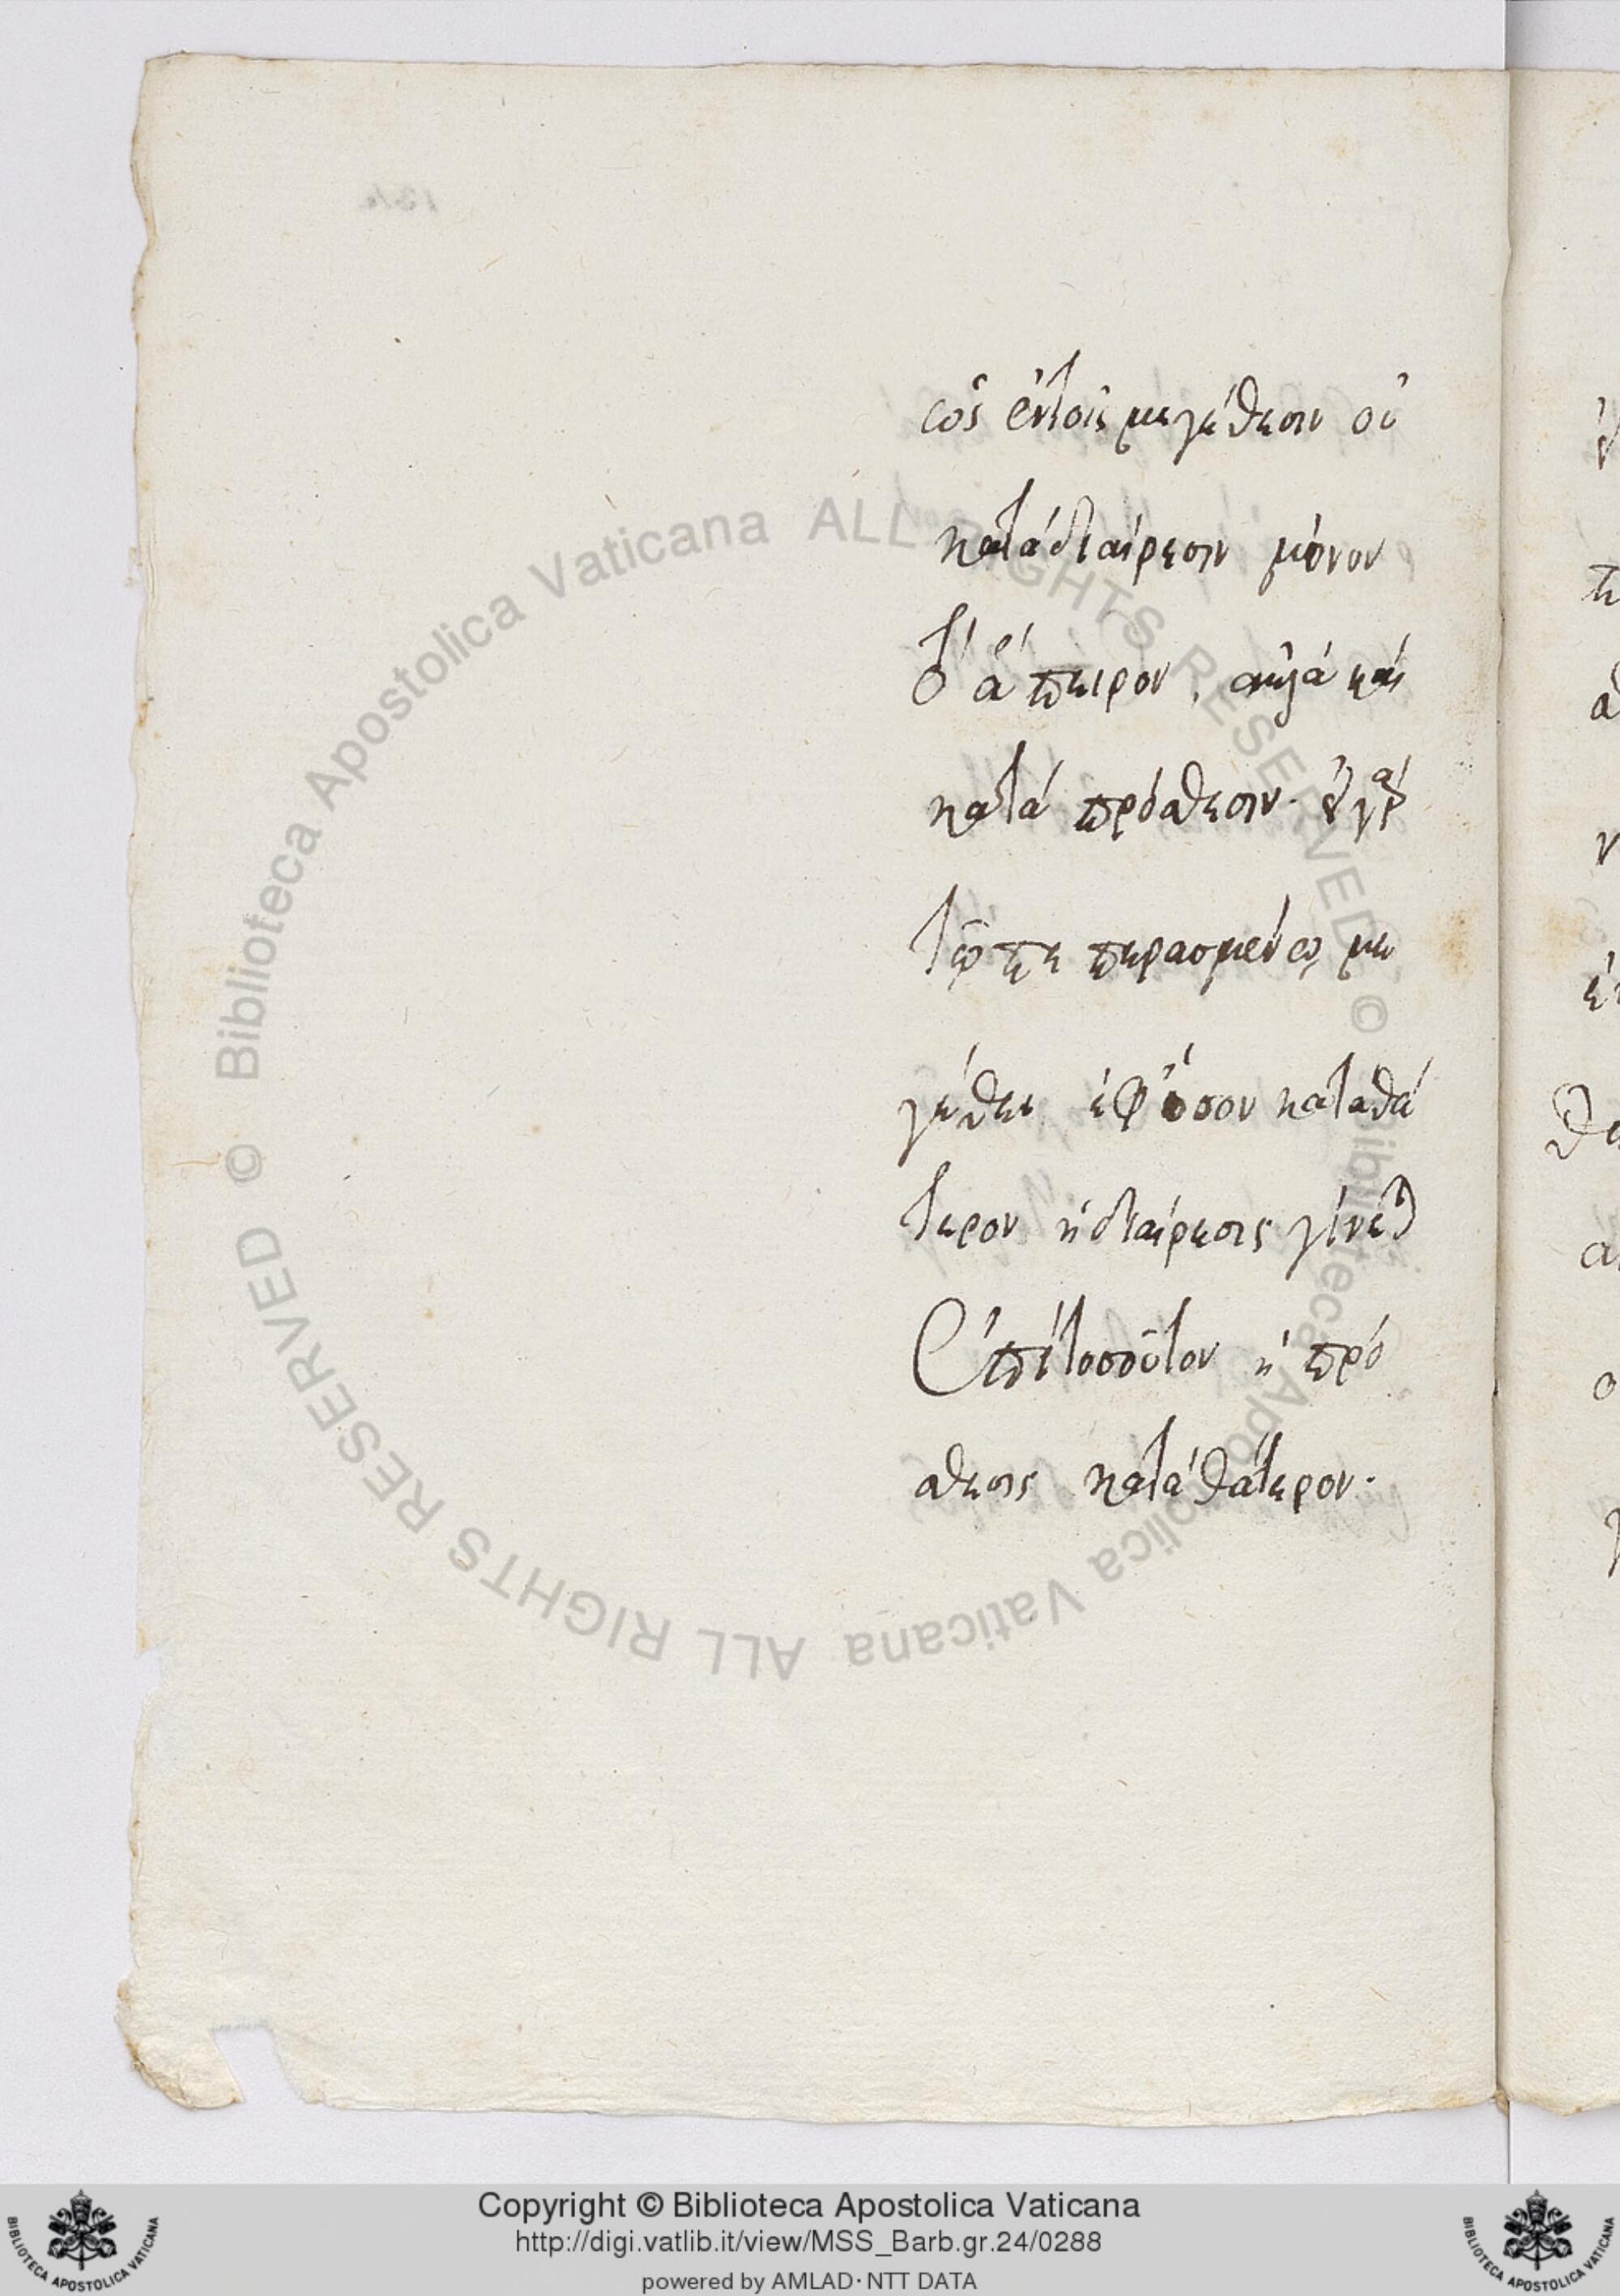 ὡς ἐν τοῖς μεγέθεσιν οὐ
κατὰ διαίρεσιν μόνον
τὸ ἄπειρον, ἀλλὰ καὶ
κατὰ πρόσθεσιν· ἐν γὰρ
τῷ πεπερασμένῳ με
γέθει ἐφ' ὅσον κατὰ θά
τερον ἡ διαίρεσις γίνεται
ἐπὶ τοσοῦτον ἡ πρό
σθεσις κατὰ θάτερον.
Biblioteca Apostolica Vaticana ALL RIGHTS RESERVED © Biblioteca Apostolica Vaticana ALL RIGHTS RESERVED ©
Copyright © Biblioteca Apostolica Vaticana
http://digi.vatlib.it/view/MSS_Barb.gr.24/0288
powered by AMLAD·NTT DATA
BIBLIOTECA APOSTOLICA VATICANA
BIBLIOTECA APOSTOLICA VATICANA